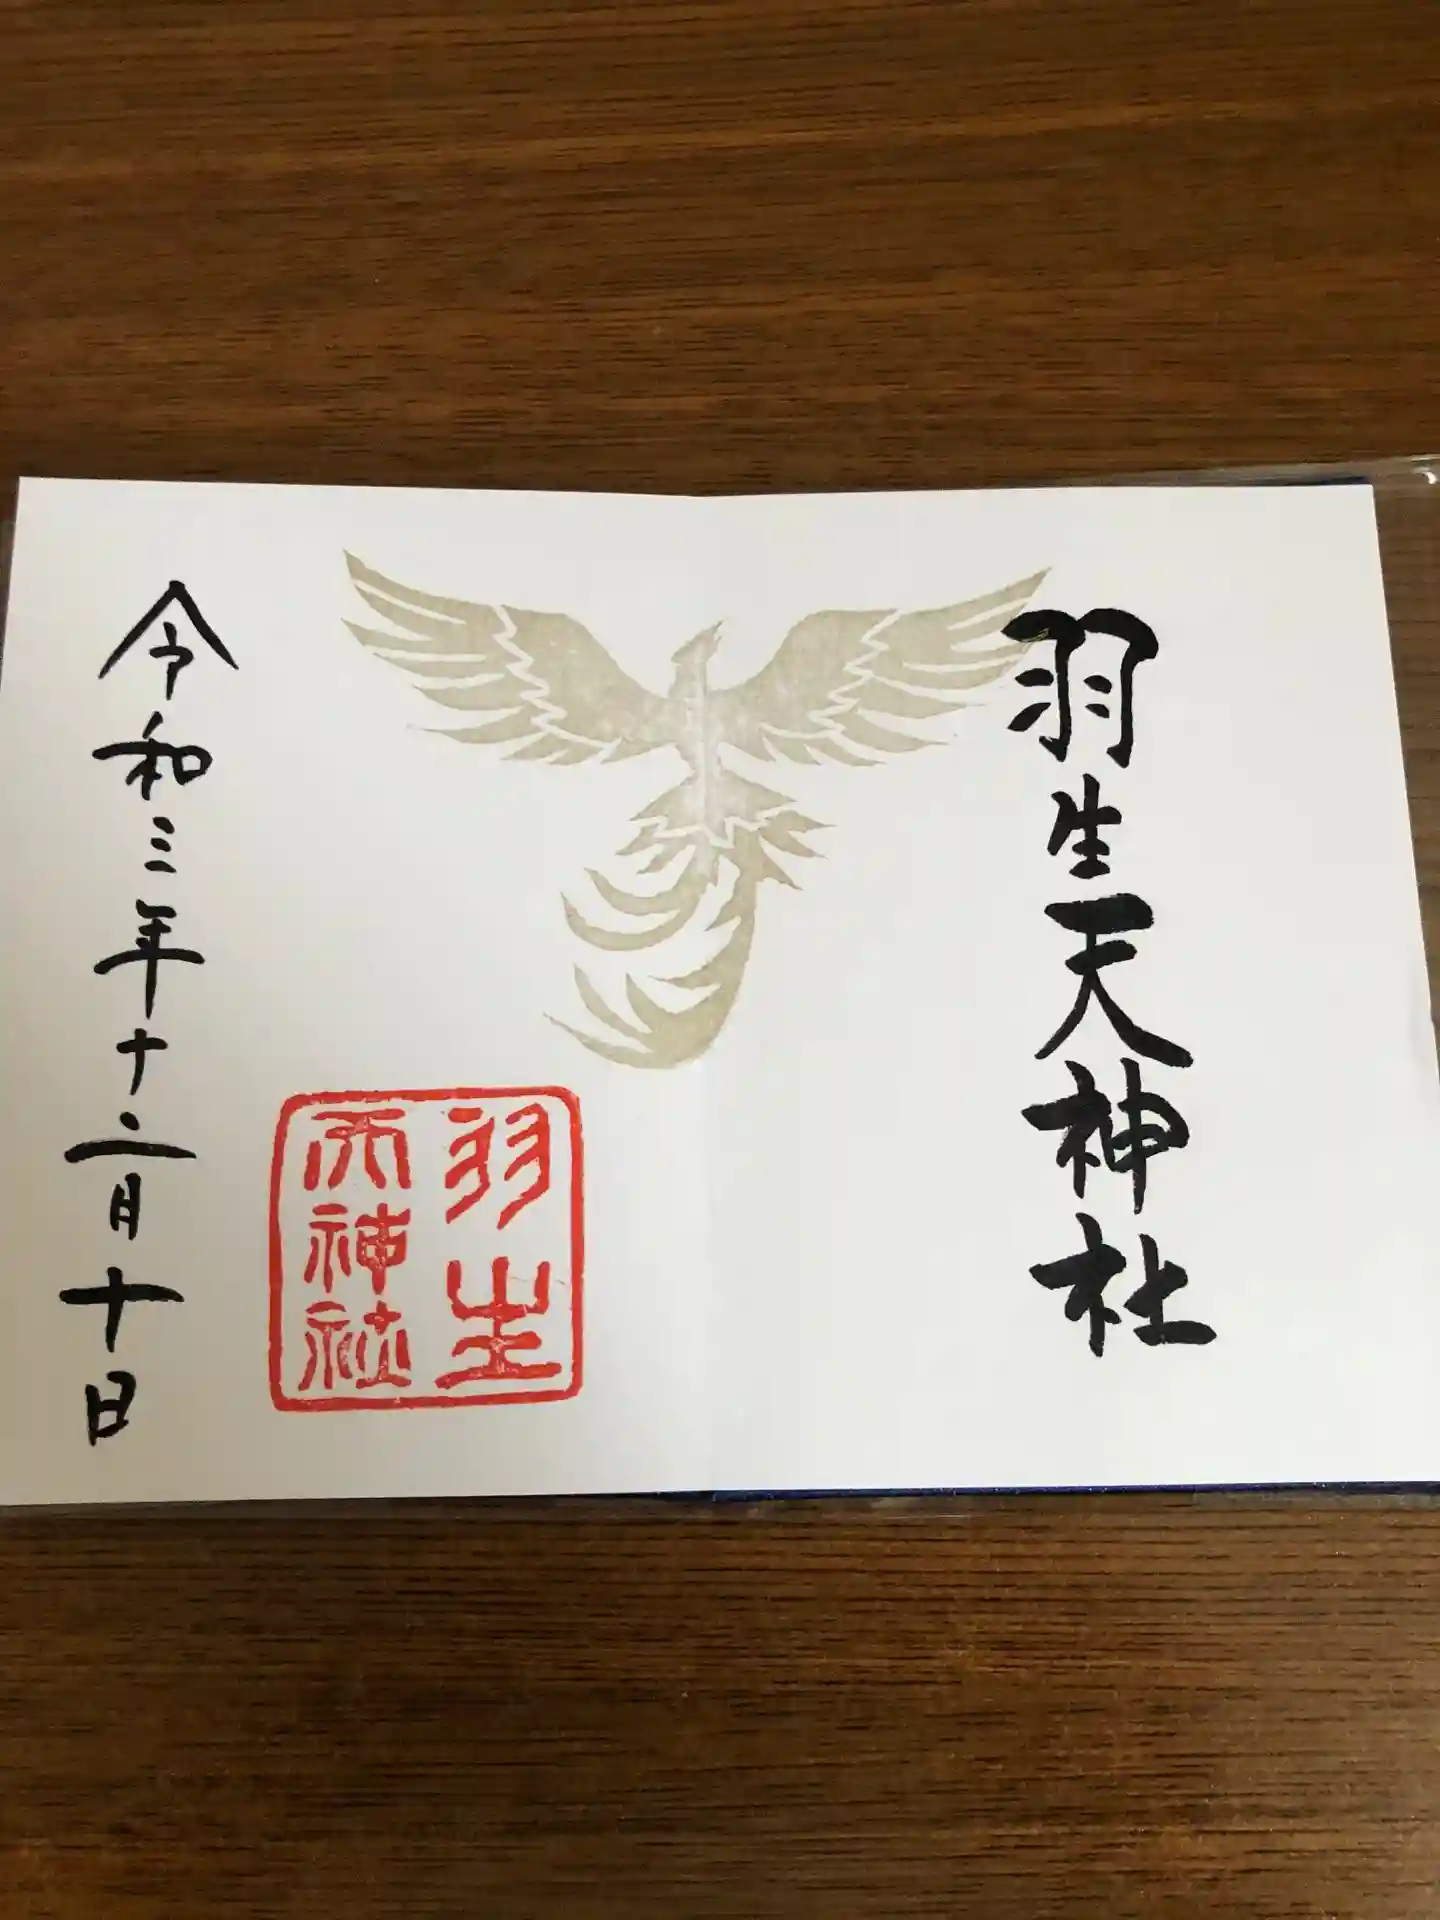 羽生天神社
羽生
天神社
令和三年十二月十日